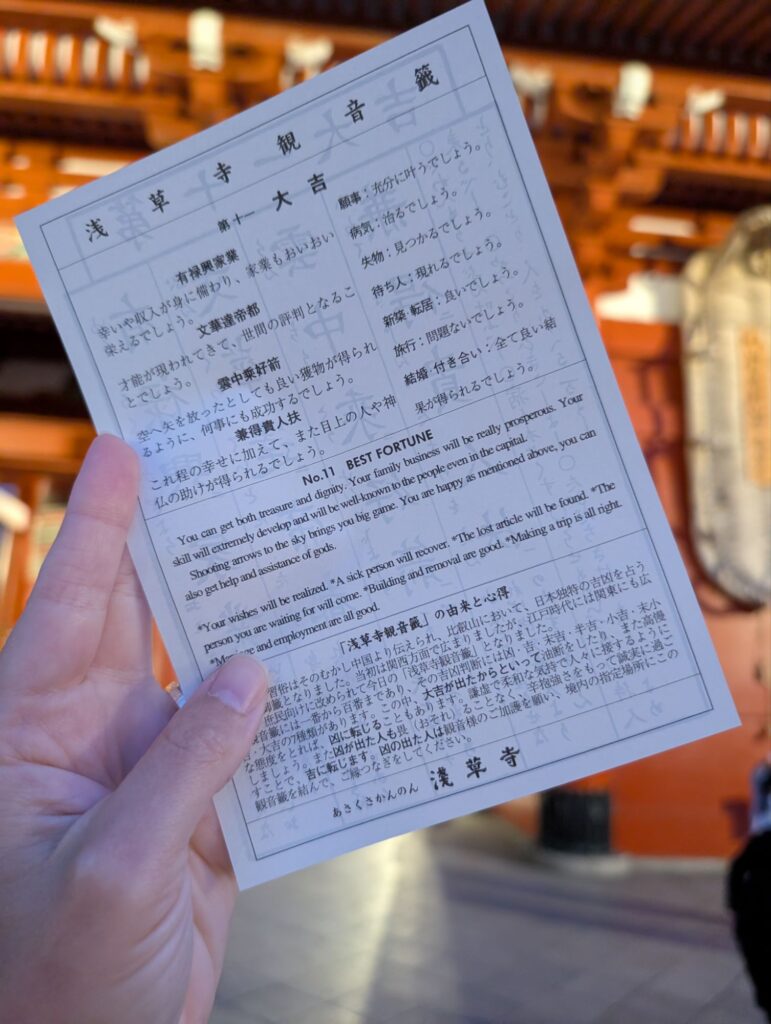 浅草寺観音籤
第十一 大吉
有禄興家業
幸いや収入が身に備わり、家業もおいおい
栄えるでしょう。
文華達帝都
才能が現われてきて、世間の評判となるこ
とでしょう。
雲中乗好箭
空へ矢を放ったとしても良い獲物が得られ
るように、何事にも成功するでしょう。
兼得貴人扶
これ程の幸せに加えて、また目上の人や神
仏の助けが得られるでしょう。
願事：充分に叶うでしょう。
病気：治るでしょう。
失物：見つかるでしょう。
待ち人：現れるでしょう。
新築・転居：良いでしょう。
旅行：問題ないでしょう。
結婚・付き合い：全て良い結
果が得られるでしょう。
No.11 BEST FORTUNE
You can get both treasure and dignity. Your family business will be really prosperous. Your
skill will extremely develop and will be well-known to the people even in the capital.
Shooting arrows to the sky brings you big game. You are happy as mentioned above, you can
also get help and assistance of gods.
*Your wishes will be realized. *A sick person will recover. *The lost article will be found. *The
person you are waiting for will come. *Building and removal are good. *Making a trip is all right.
*Marriage and employment are all good.
「浅草寺観音籤」の由来と心得
習俗はそのむかし中国より伝えられ、比叡山において、日本独特の吉凶を占う
籤となりました。当初は関西方面で広まりましたが、江戸時代には関東にも広
庶民向けに改められて今日の「浅草寺観音籤」となりました。
音籤には一番から百番まであり、その吉凶判断には凶・吉・末吉・半吉・小吉・末小
吉・大吉の7種類があります。この中、大吉が出たからといって油断をしたり、また高慢
な態度をとれば、凶に転じることもあります。謙虚で柔和な気持で人々に接するように
しましょう。また凶が出た人も畏（おそれ）ることなく、辛抱強さをもって誠実に過ご
すことで、吉に転じます。凶の出た人は観音様のご加護を願い、境内の指定場所にこの
観音籤を結んで、ご縁つなぎをしてください。
あさくさかんのん 浅草寺